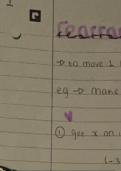 rearra
→ to move 1
eg → make
① get x on
(-3